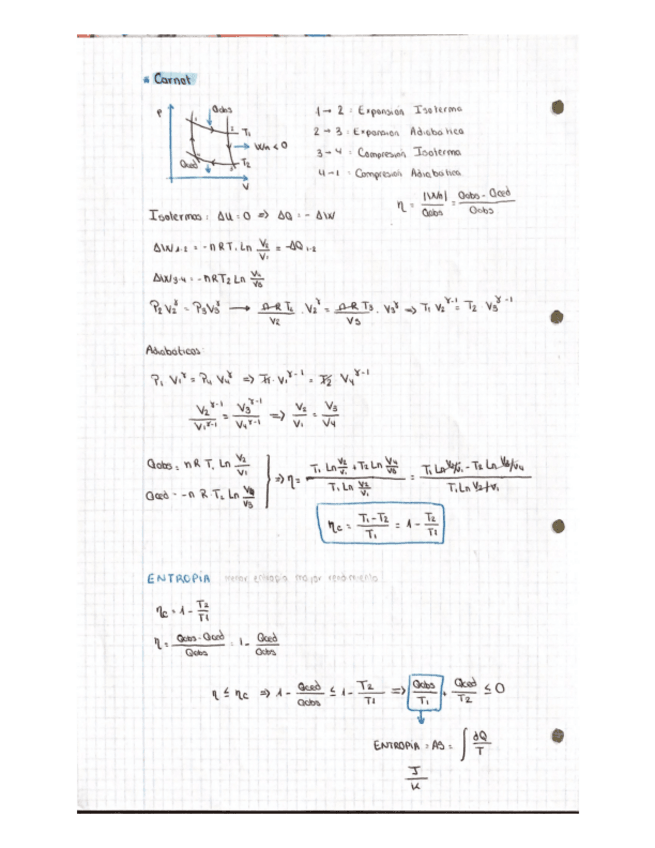 * Carnot
P
Qabs
1
2
T1
Wn < 0
Qced
3
T2
V
1 → 2 : Expansión Isoterma
2 → 3 : Expansion Adiabatica
3 → 4 : Compresión Isoterma
4 → 1 : Compresión Adiabatica
η = |Wn| / Qabs = (Qabs - Qced) / Qabs
Isotermas : ΔU = 0 => ΔQ = - ΔW
ΔW1-2 = - nRT1 Ln V2/V1 = -ΔQ1-2
ΔW3-4 = - nRT2 Ln V4/V3
P2 V2^γ = P3 V3^γ → nRT2/V2 · V2^γ = nRT3/V3 · V3^γ => T1 V2^γ-1 = T2 V3^γ-1
Adiabáticas:
P1 V1^γ = P4 V4^γ => T1 · V1^γ-1 = T2 · V4^γ-1
V2^γ-1 / V1^γ-1 = V3^γ-1 / V4^γ-1 => V2/V1 = V3/V4
Qabs = nRT1 Ln V2/V1
Qced = -nR·T2 Ln V4/V3
=> η = (T1 Ln V2/V1 + T2 Ln V4/V3) / (T1 Ln V2/V1) = (T1 Ln V2/V1 - T2 Ln V3/V4) / (T1 Ln V2/V1)
ηc = (T1 - T2) / T1 = 1 - T2/T1
ENTROPIA menor entropia, mayor rendimiento
ηc = 1 - T2/T1
η = (Qabs - Qced) / Qabs = 1 - Qced/Qabs
η ≤ ηc => 1 - Qced/Qabs ≤ 1 - T2/T1 => Qabs/T1 + Qced/T2 ≤ 0
ENTROPIA = ΔS = ∫ dQ/T
J/K